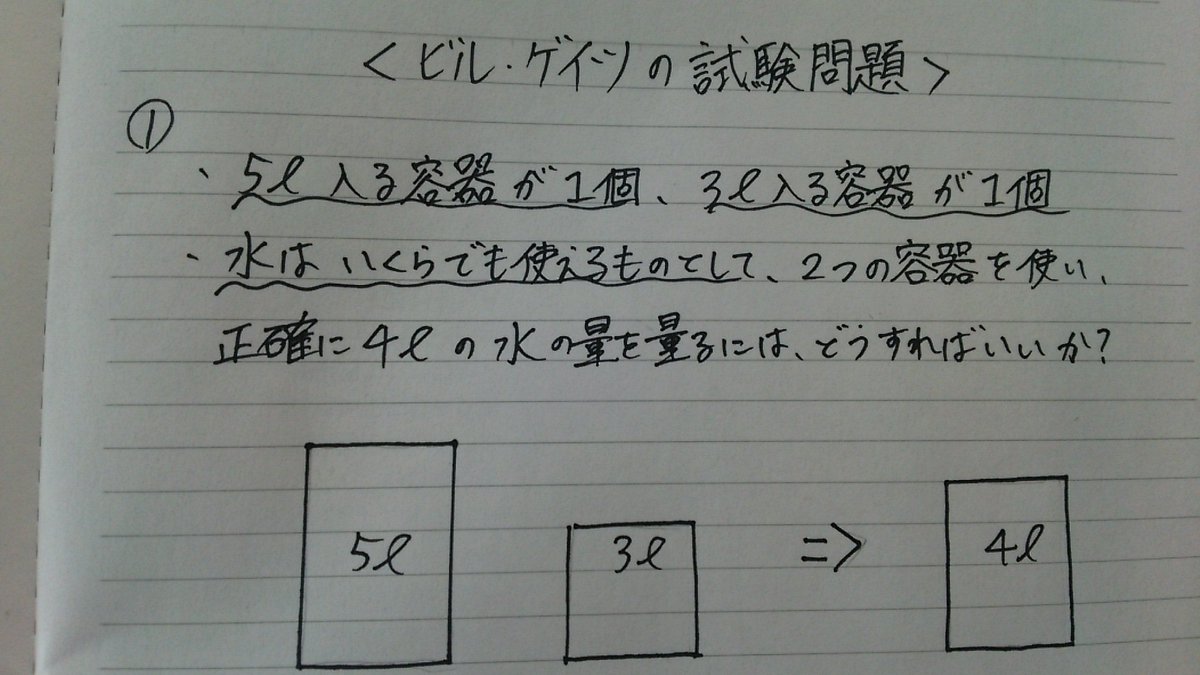 <ビル・ゲイツの試験問題>
①
・5ℓ入る容器が1個、3ℓ入る容器が1個
・水はいくらでも使えるものとして、2つの容器を使い、
正確に4ℓの水の量を量るには、どうすればいいか?
5ℓ 3ℓ => 4ℓ